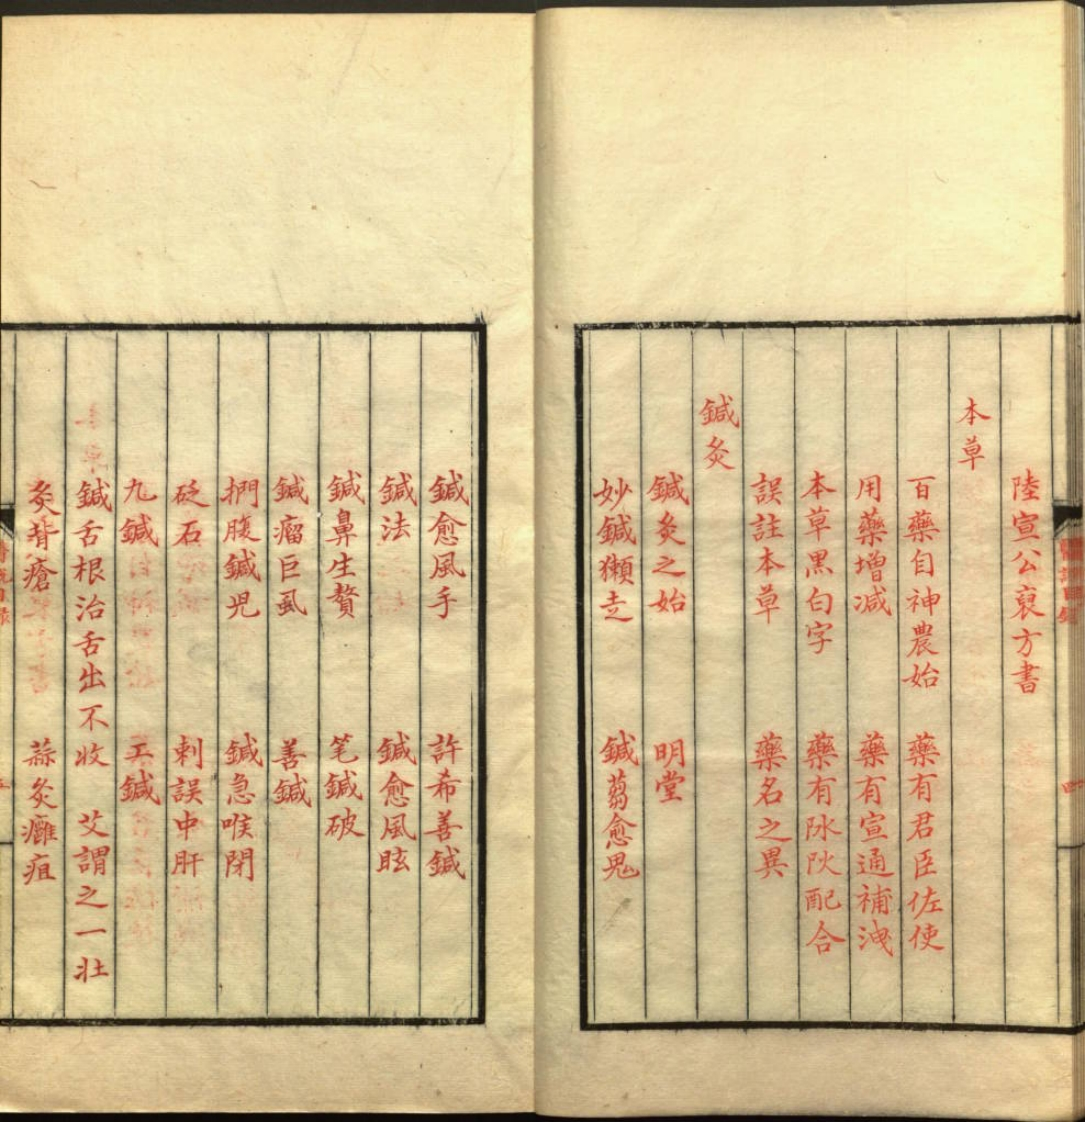 陸宣公裒方書
本草
百藥自神農始 藥有君臣佐使
用藥增减 藥有宣通補洩
本草黑白字 藥有阴阳配合
誤註本草 藥名之異
鍼灸
鍼灸之始 明堂
妙鍼獺走 鍼芻愈鬼
鍼愈風手 許希善鍼
鍼法 鍼愈風眩
鍼鼻生贅 笔鍼破
鍼瘤巨虱 善鍼
捫腹鍼兒 鍼急喉閉
砭石 刺誤中肝
九鍼 工鍼
鍼舌根治舌出不收 艾謂之一壯
灸背瘡 蒜灸癰疽